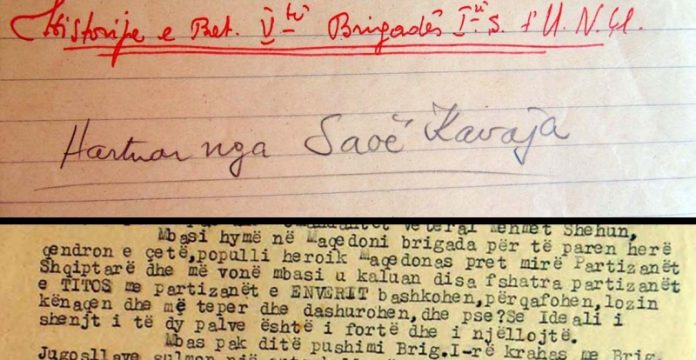 Historije e Bat. V-të Brigadës I-rë S. t'U. N. Çl.
Hartuar nga Saoë Kavaja
Veteral Mehmet Shehun,
Mbasi hymë në Maqedoni brigada për të paren herë
qendron e çetë,populli heroik maqedonas pret mirë Partizanët
Shqiptarë dhe më vonë mbasi u kaluan disa fshatra partizanët
e TITOS me partizanët e ENVERIT bashkohen,përqafohen,lozin
kënaqen dhe më teper dhe dashurohen,dhe pse?Se Ideali i
shenjt i të dy palve është i fortë dhe i njëllojtë.
Mbas pak ditë pushimi Brig.I-rë krahas me Brig.
Jugosllave